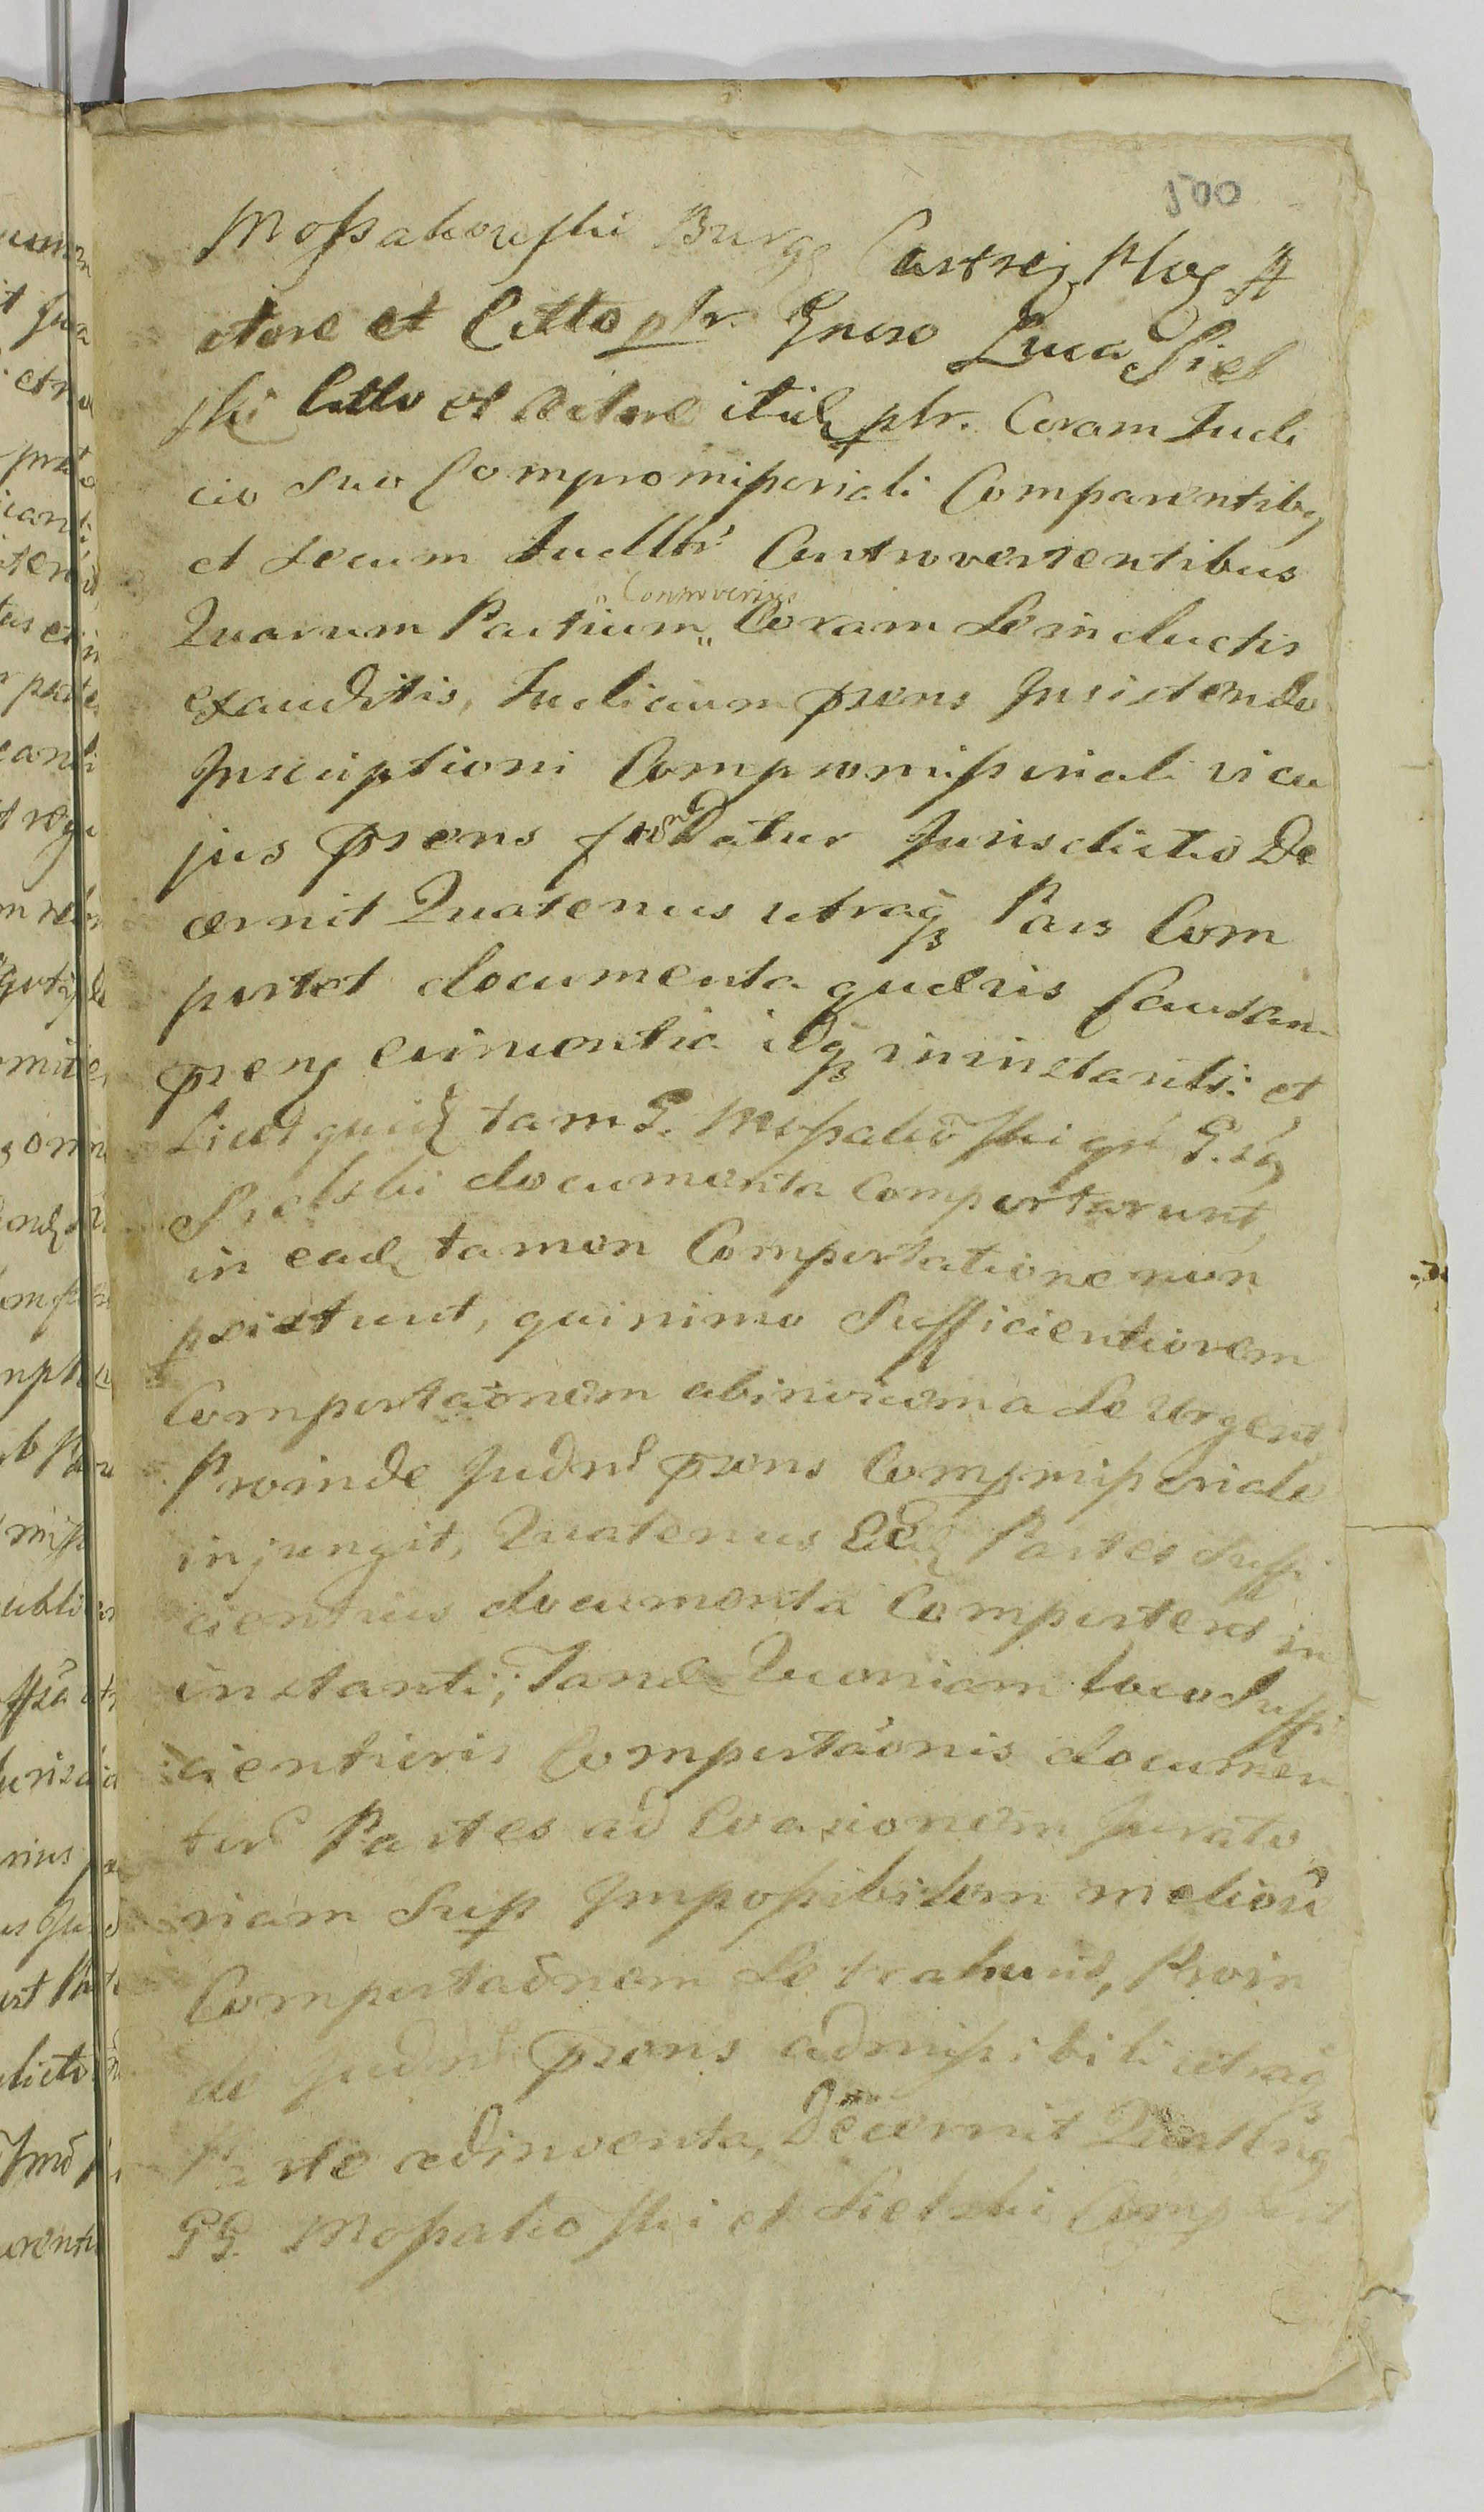 500
Mossakowski Burg Castren Ploc A
ctore et Citto ptr. Gnoso Luca Siel
ski Citto et Actore itid ptr. Coram Judi
cio suo Compromissoriali Comparentibq
et secum Judllr Controvertentibus
Controversiis
Quarum Partium Coram se inductis
exauditis, Judicium prens Insistendo
Inscriptioni Compromissoriali vi cu
jus prens fundatur Jurisdictio De
cernit Quatenus utraq Pars Com
portet documenta quævis Causam
prens evincentia idq in instanti: et
Licet quid tam G. Mossakoski qm G.
Sielski documenta Comportarunt,
in ead tamen Comportatione non
psistunt, quinimo Sufficientiorem
Comportaonem abinvicem a se Urgent
Proinde Judm prens Compmissoriale
injungit, Quatenus Eæd Partes Suffi
cientius documenta Comportent in
instanti; Tand Quoniam loco Suffi
cientioris Comportaonis documen
tor Partes ad Evasionem Jurato
riam Sup Impossibilem melior
Comportaonem se trahunt, Proin
de Judm prens admissibili utraq
Parte adinventa, Decernit Quatenq
GG. Mossakoski et Sielski